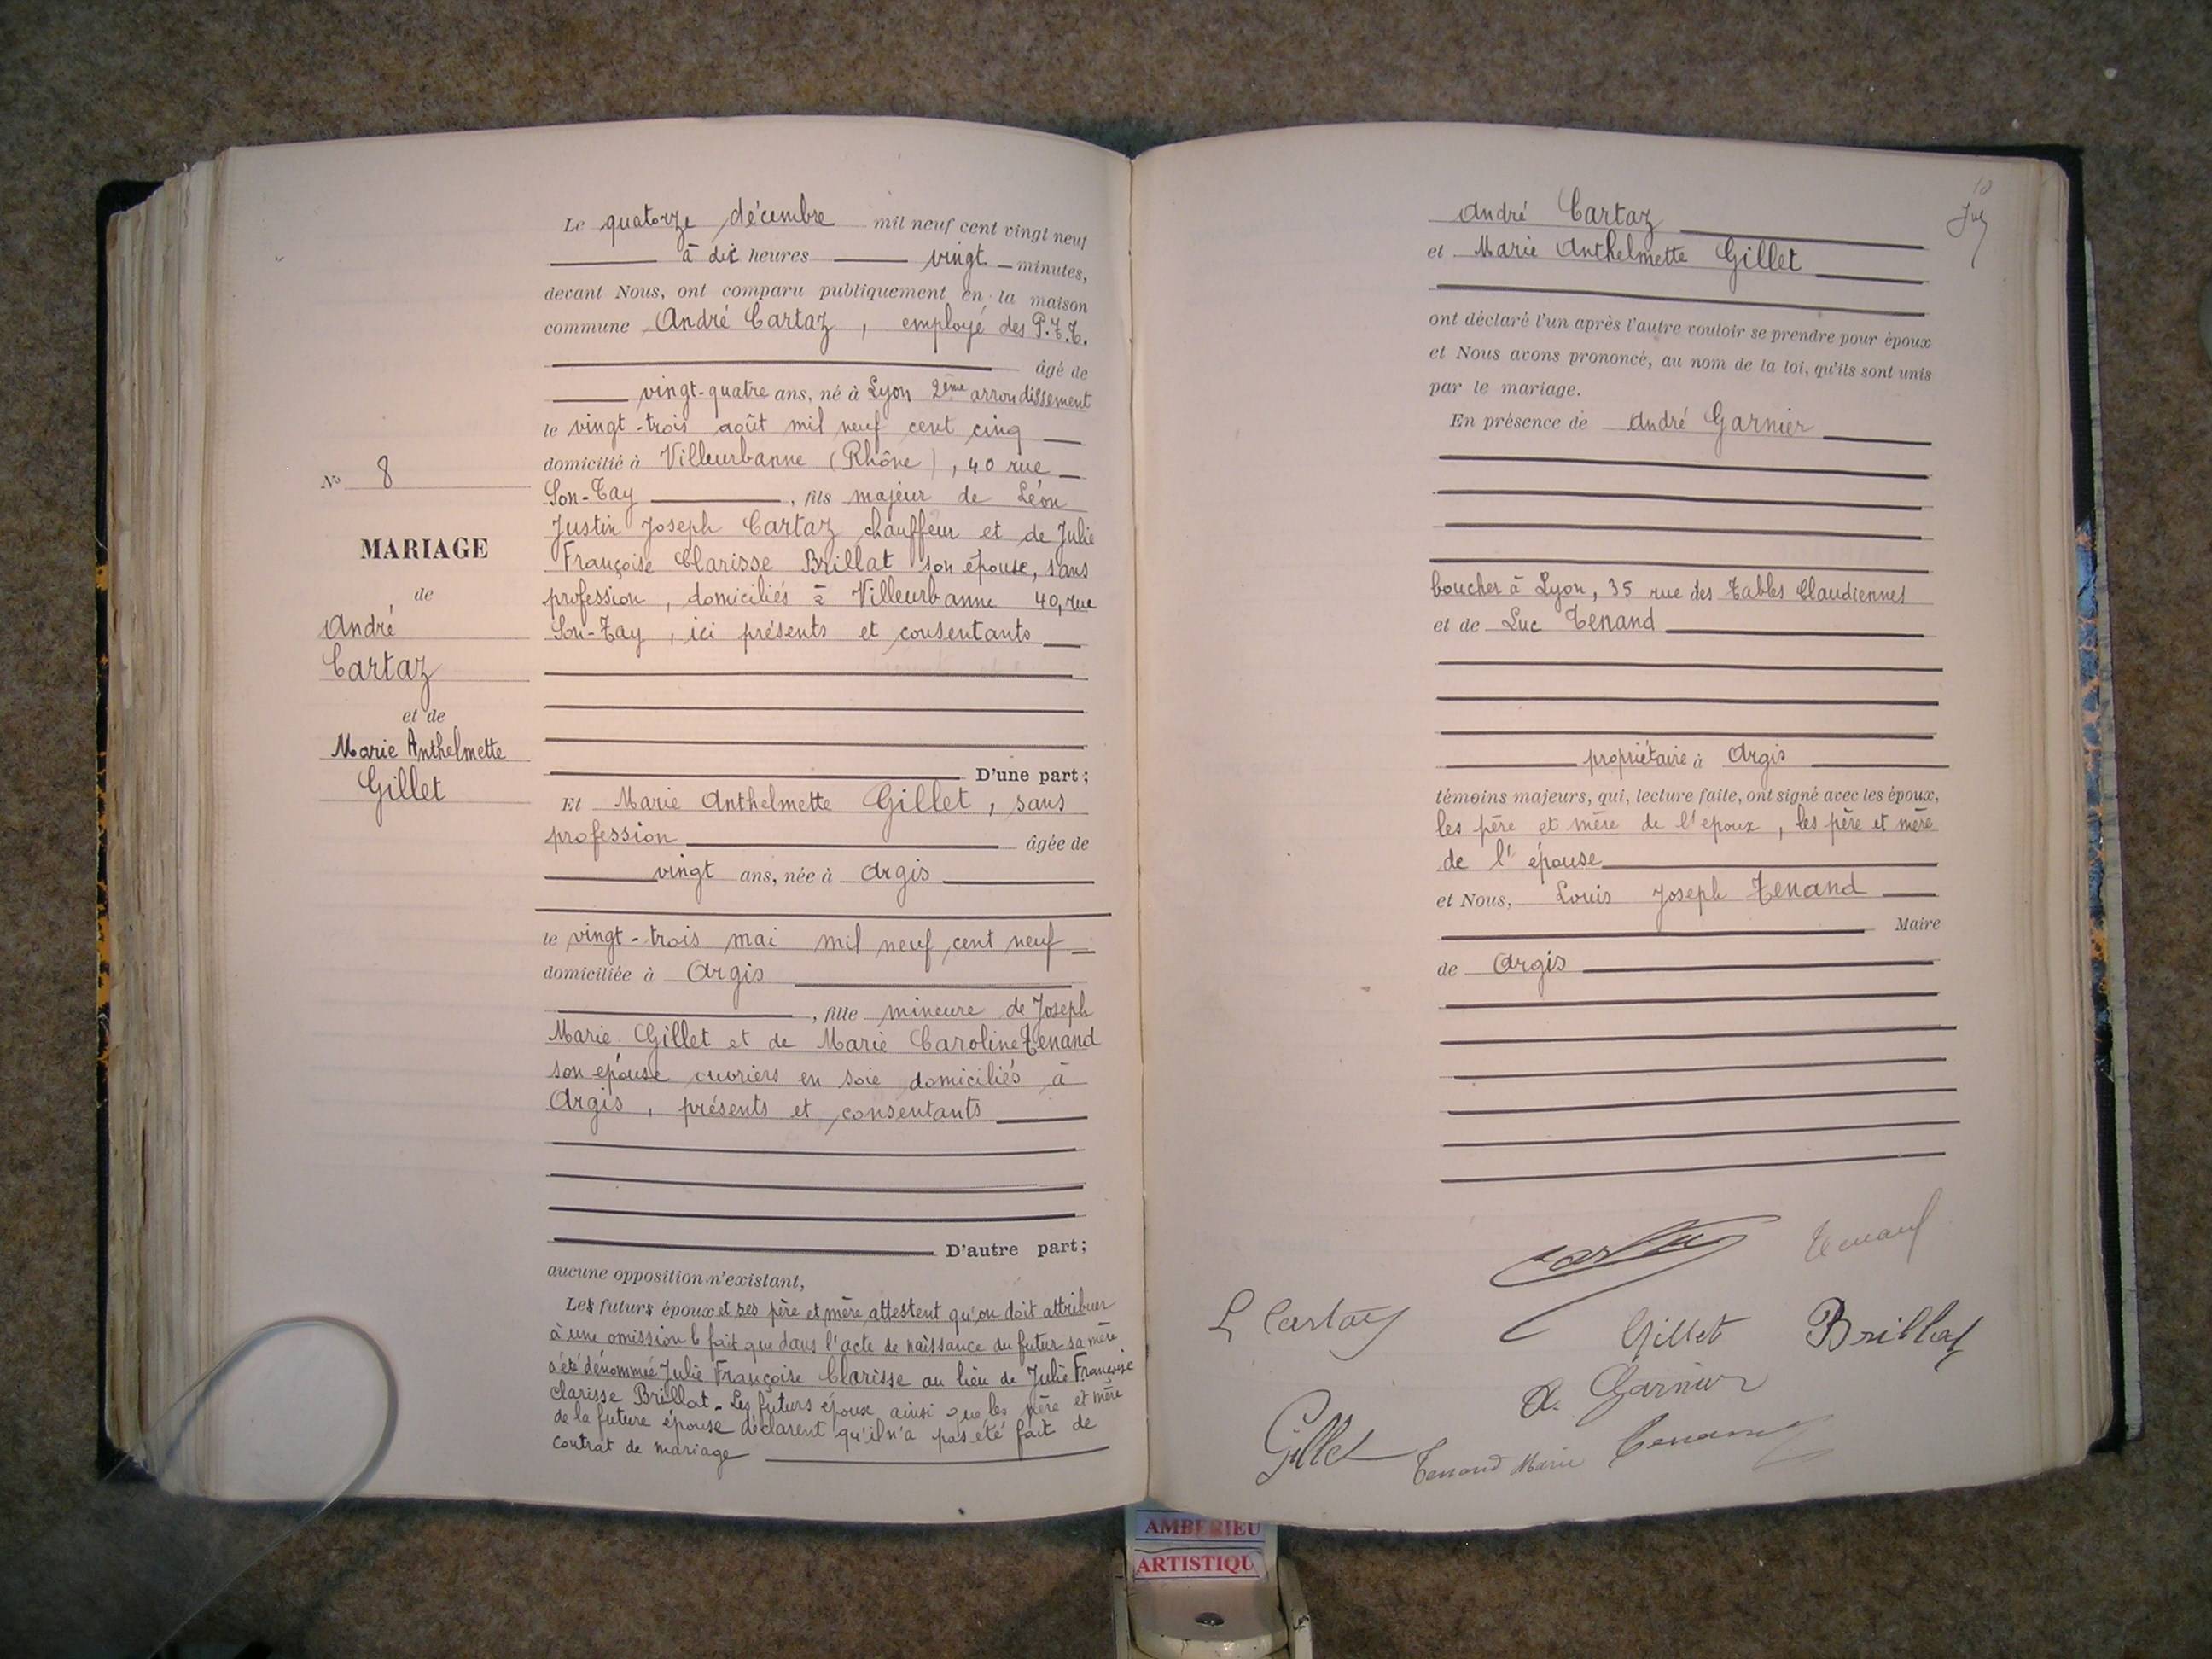 Nº 8
MARIAGE
de
André
Cartaz
et de
Marie Anthelmette
Gillet
Le quatorze décembre mil neuf cent vingt neuf
à dix heures vingt minutes,
devant Nous, ont comparu publiquement en la maison
commune André Cartaz, employé des P.T.T.
âgé de
vingt-quatre ans, né à Lyon 2ème arrondissement
le vingt-trois août mil neuf cent cinq
domicilié à Villeurbanne (Rhône), 40 rue
Son-Tay, fils majeur de Léon
Justin Joseph Cartaz chauffeur et de Julie
Françoise Clarisse Brillat son épouse, sans
profession, domiciliés à Villeurbanne 40, rue
Son-Tay, ici présents et consentants
D'une part;
Et Marie Anthelmette Gillet, sans
profession âgée de
vingt ans, née à Argis
le vingt-trois mai mil neuf cent neuf
domiciliée à Argis
, fille mineure de Joseph
Marie Gillet et de Marie Caroline Tenand
son épouse ouvriers en soie domiciliés à
Argis, présents et consentants
D'autre part;
aucune opposition n'existant,
Les futurs époux et ses père et mère attestent qu'on doit attribuer
à une omission le fait que dans l'acte de naissance du futur sa mère
a été dénommée Julie Françoise Clarisse au lieu de Julie Françoise
Clarisse Brillat. Les futurs époux ainsi que les père et mère
de la future épouse déclarent qu'il n'a pas été fait de
contrat de mariage
10
André Cartaz
et Marie Anthelmette Gillet
ont déclaré l'un après l'autre vouloir se prendre pour époux
et Nous avons prononcé, au nom de la loi, qu'ils sont unis
par le mariage.
En présence de André Garnier
boucher à Lyon, 35 rue des Tables Claudiennes
et de Luc Tenand
propriétaire à Argis
témoins majeurs, qui, lecture faite, ont signé avec les époux,
les père et mère de l'époux, les père et mère
de l'épouse
et Nous, Louis Joseph Tenand
Maire
de Argis
Tenand
L Cartaz
Gillet Brillat
A. Garnier
Gillet Tenand Marie Tenand
AMBERIEU
ARTISTIQU